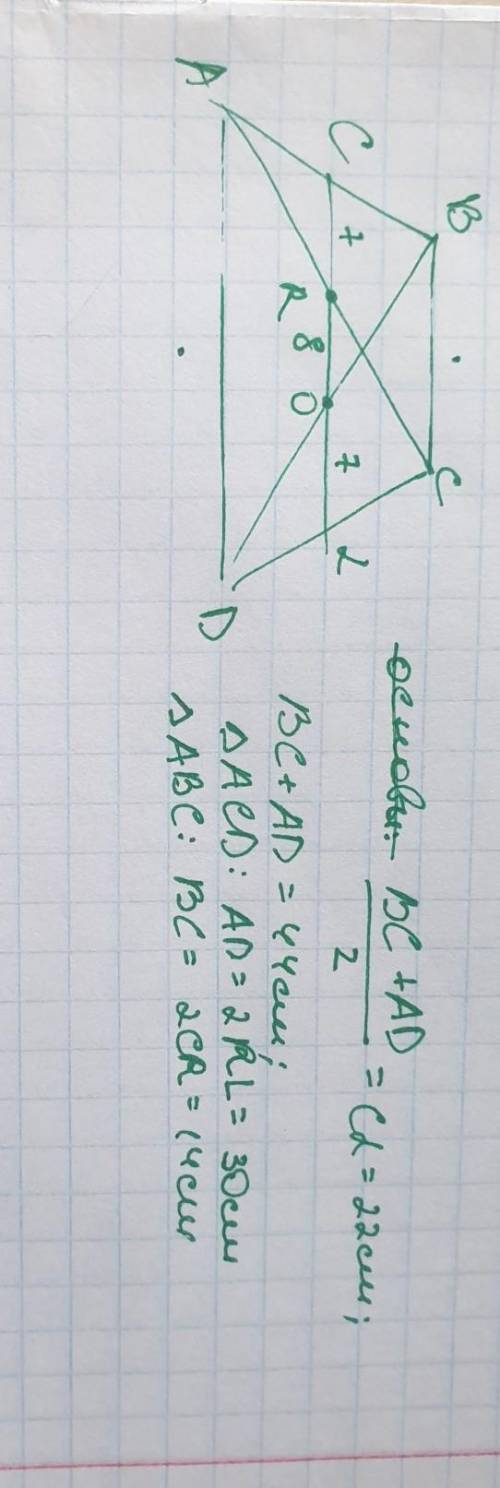 B C
C 7 R 8 O 7 L
A D
основы: BC + AD
2
= CL = 22см;
BC + AD = 44см;
△ACD: AD = 2RL = 30см
△ABC: BC = 2CR = 14см